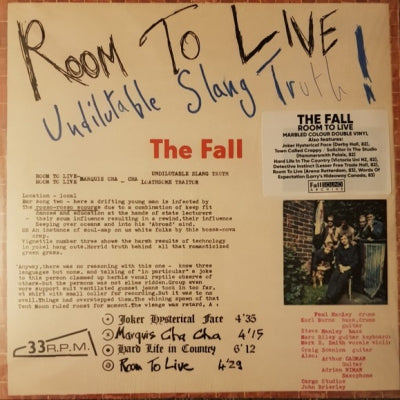 ROOM TO LIVE
Undilutable Slang Truth!
The Fall
THE FALL
ROOM TO LIVE
MARBLED COLOUR DOUBLE VINYL
Also features:
Joker Hysterical Face (Derby Hall, 82),
Town Called Crappy / Solicitor In The Studio
(Hammersmith Palais, 82)
Hard Life In The Country (Victoria Uni NZ, 82),
Detective Instinct (Lesser Free Trade Hall, 82),
Room To Live (Arena Rotterdam, 83), Words Of
Expectation (Larry's Hideaway Canada, 83)
Fall SOUND
ARCHIVE
UNDILUTABLE SLANG TRUTH
ROOM TO LIVE-MARQUIS CHA - CHA
ROOM TO LIVE LOATHSOME TRAITOR
Location - local
War song two - here a drifting young man is infected by
the rosso-rosso scourge due to a combination of keep fit
dances and education at the hands of state lecturers
- their soul influence resulting in a rewind, their influence
Seeping over oceans and into his 'Abroad' mind.
OR An instance of soul-map on us white folks by this bosss-nova
crop.
Vignettis number three shows the harm results of technology
in joke1 hang outs.Horrid truth behind all that romanticized
green grass.
'Anyway,there was no reasoning with this one - know three
languages but none, and talking of "in particular" a joke
to this person claimed up herbie venal reptile observe of
others-but the persons was not silos ridden.Group even
wore support null ventilated gammel jeans took in too far,
wt shirt with small collar for recording.But it was to no
avail.Things had overstepped them.The whining spawn of that
Tent Moon ruled roost for moment.The visage was retard, A :
33 R.P.M.
Joker Hysterical Face 4'35
Marquis Cha Cha 4'15
Hard Life in Country 6'12
Room To Live 4'29
Paul Hanley drums
Karl Burns bass,drums
guitar
Steve Hanley bass
Marc Riley guitar keyboards
Mark E. Smith vocals violin
Craig Scanlon guitar
Also:
Arthur CADMAN
Guitar
Adrian NIMAN
Saxophone
Cargo Studios
John Brierley